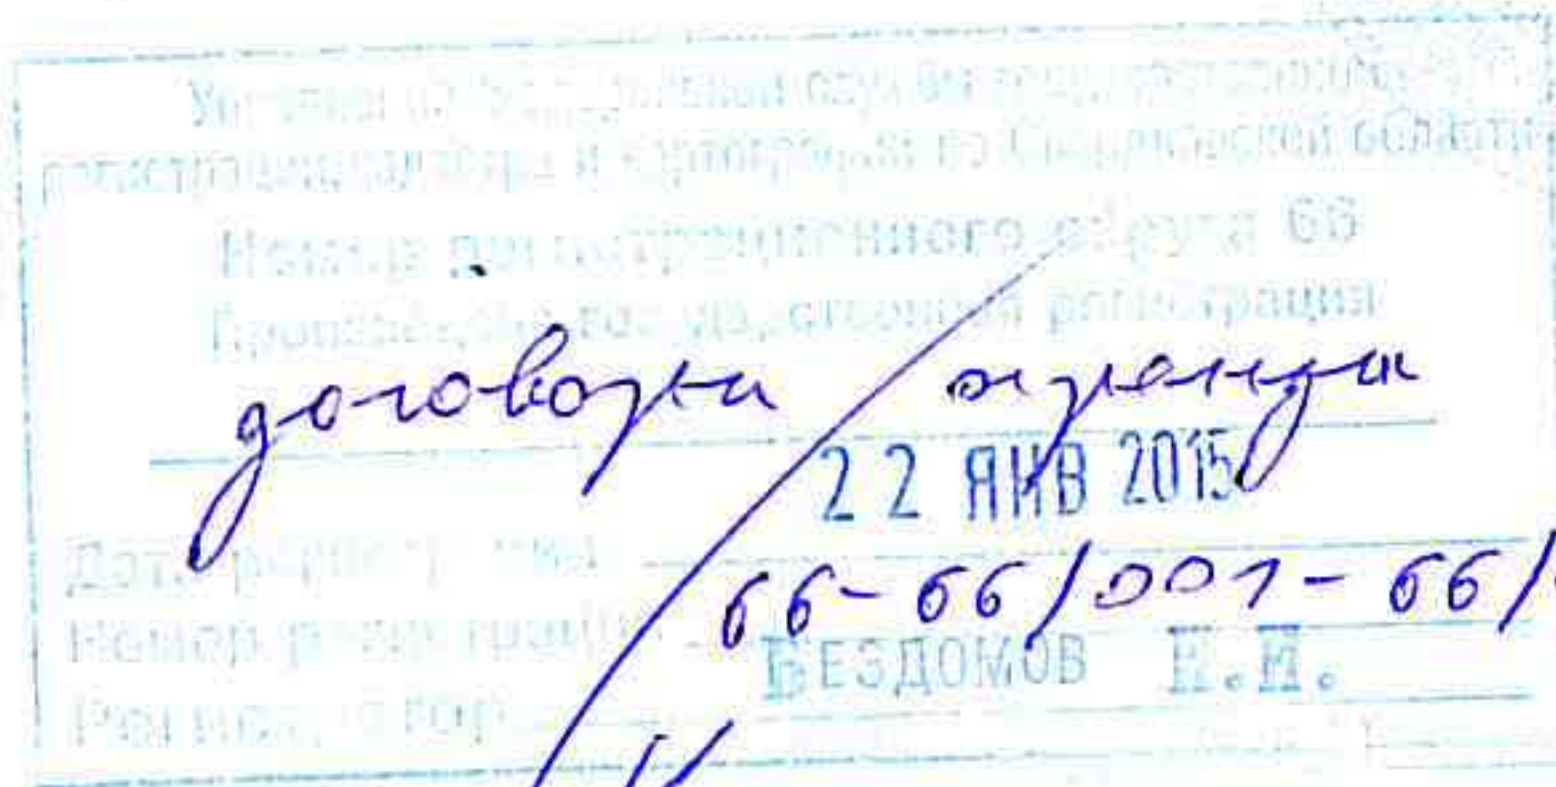 Управление Федеральной службы государственной
регистрации, кадастра и картографии по Свердловской области
Номер регистрационного округа 66
Произведена государственная регистрация
договора аренды
22 ЯНВ 2015
Дата регистрации
66-66/001-66/
Номер регистрации
БЕЗДОМОВ Н.И.
Регистратор